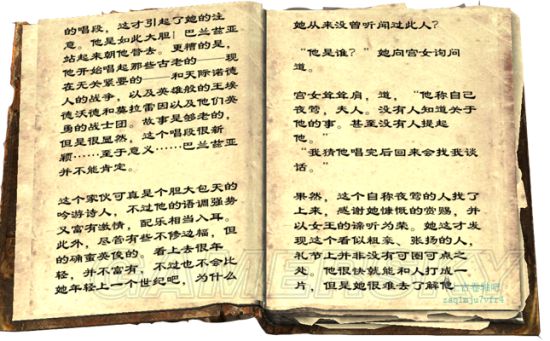 的唱段，这才引起了她的注
意。他是如此大胆！巴兰兹亚
站起来朝他昔去。更糟的是，
他开始唱起那些古老的——现
在无关紧要的——和天际诺德
人的战争，以及英雄般的王埃
德沃德和莫拉雷因以及他们英
勇的战士团。故事是够老的，
但是很显然，这个唱段很新
颖……至于意义……巴兰兹亚
并不能肯定。
这个家伙可真是个胆大包天的
吟游诗人，不过他的语调强势
又富有激情，配乐相当入耳。
此外，尽管有些不修边幅，但
的确蛮英俊的　看上去很年
轻，并不富有，不过也不会比
她年轻上一个世纪吧，为什么
她从来没曾听闻过此人？
“他是谁？”她向宫女询问
道。
宫女耸耸肩，道，“他称自己
夜莺，夫人。没有人知道关于
他的事。甚至没有人提起
他。”
“我猜他唱完后回来会找我谈
话。”
果然，这个自称夜莺的人找了
上来，感谢她慷慨的赏赐，并
以女王的谛听为荣。她这才发
现这个看似粗豪、张扬的人，
礼节上并非没有可圈可点之
处。他很快就能和人打成一
片，但是她很难去了解他
GAMERSKY
上古卷轴吧
zaq1mju7vfr4